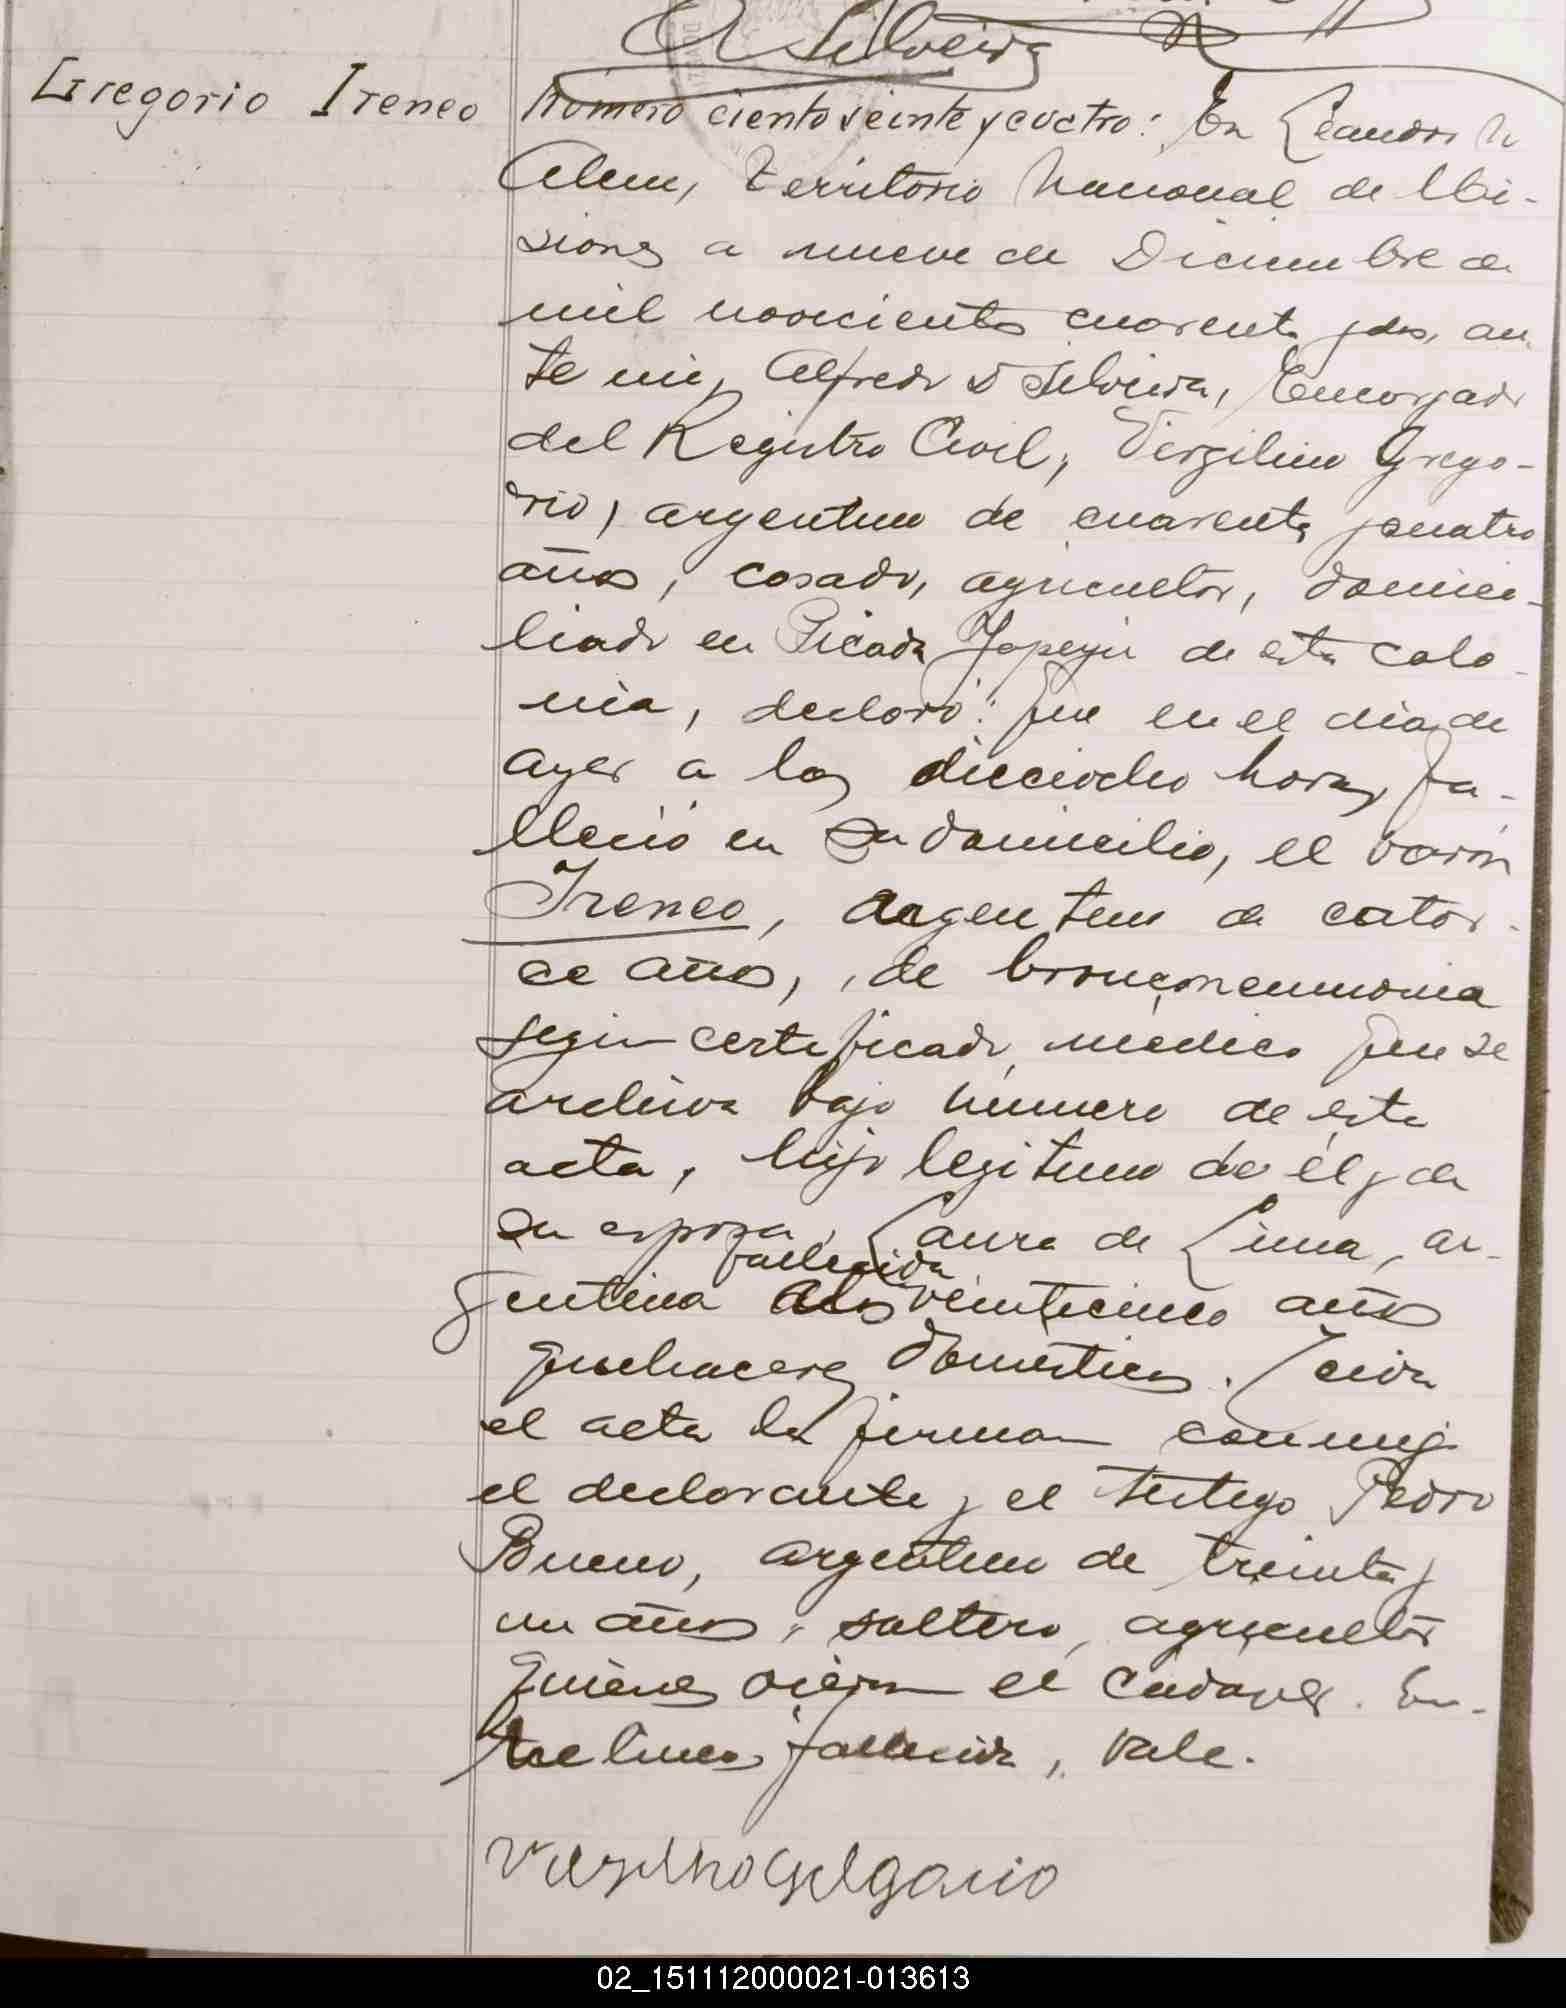 A Silveira
Gregorio Ireneo
Número ciento veinte y cuatro: En Leandro N
Alem, Territorio Nacional de Mi-
siones a nueve de Diciembre de
mil novecientos cuarenta y dos, an
te mi, Alfredo D Silveira, Encargado
del Registro Civil, Virgilino Grego-
rio, argentino de cuarenta y cuatro
años, casado, agricultor, domici-
liado en Picada Yapeyú de esta colo-
nia, declaró: que en el día de
ayer a las dieciocho horas, fa-
lleció en su domicilio, el varón
Ireneo, argentino de cator-
ce años, de bronconeumonia
según certificado médico que se
archiva bajo número de esta
acta, hijo legítimo de él y de
su esposa, Laura de Lima, ar-
fallecida
gentina a los veinticinco años
quehaceres domésticos. Leida
el acta la firman conmigo
el declarante y el testigo Pedro
Bueno, argentino de treinta y
un años, soltero, agricultor
quienes vieron el cadaver. En-
tre lineas fallecida, vale.
Virgilino Gregorio
02_151112000021-013613